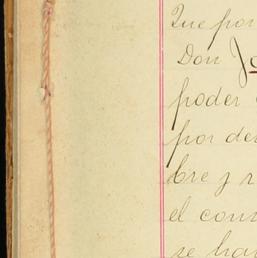 Que por
Don Jo
poder
por de
bre y r
el con
se ha